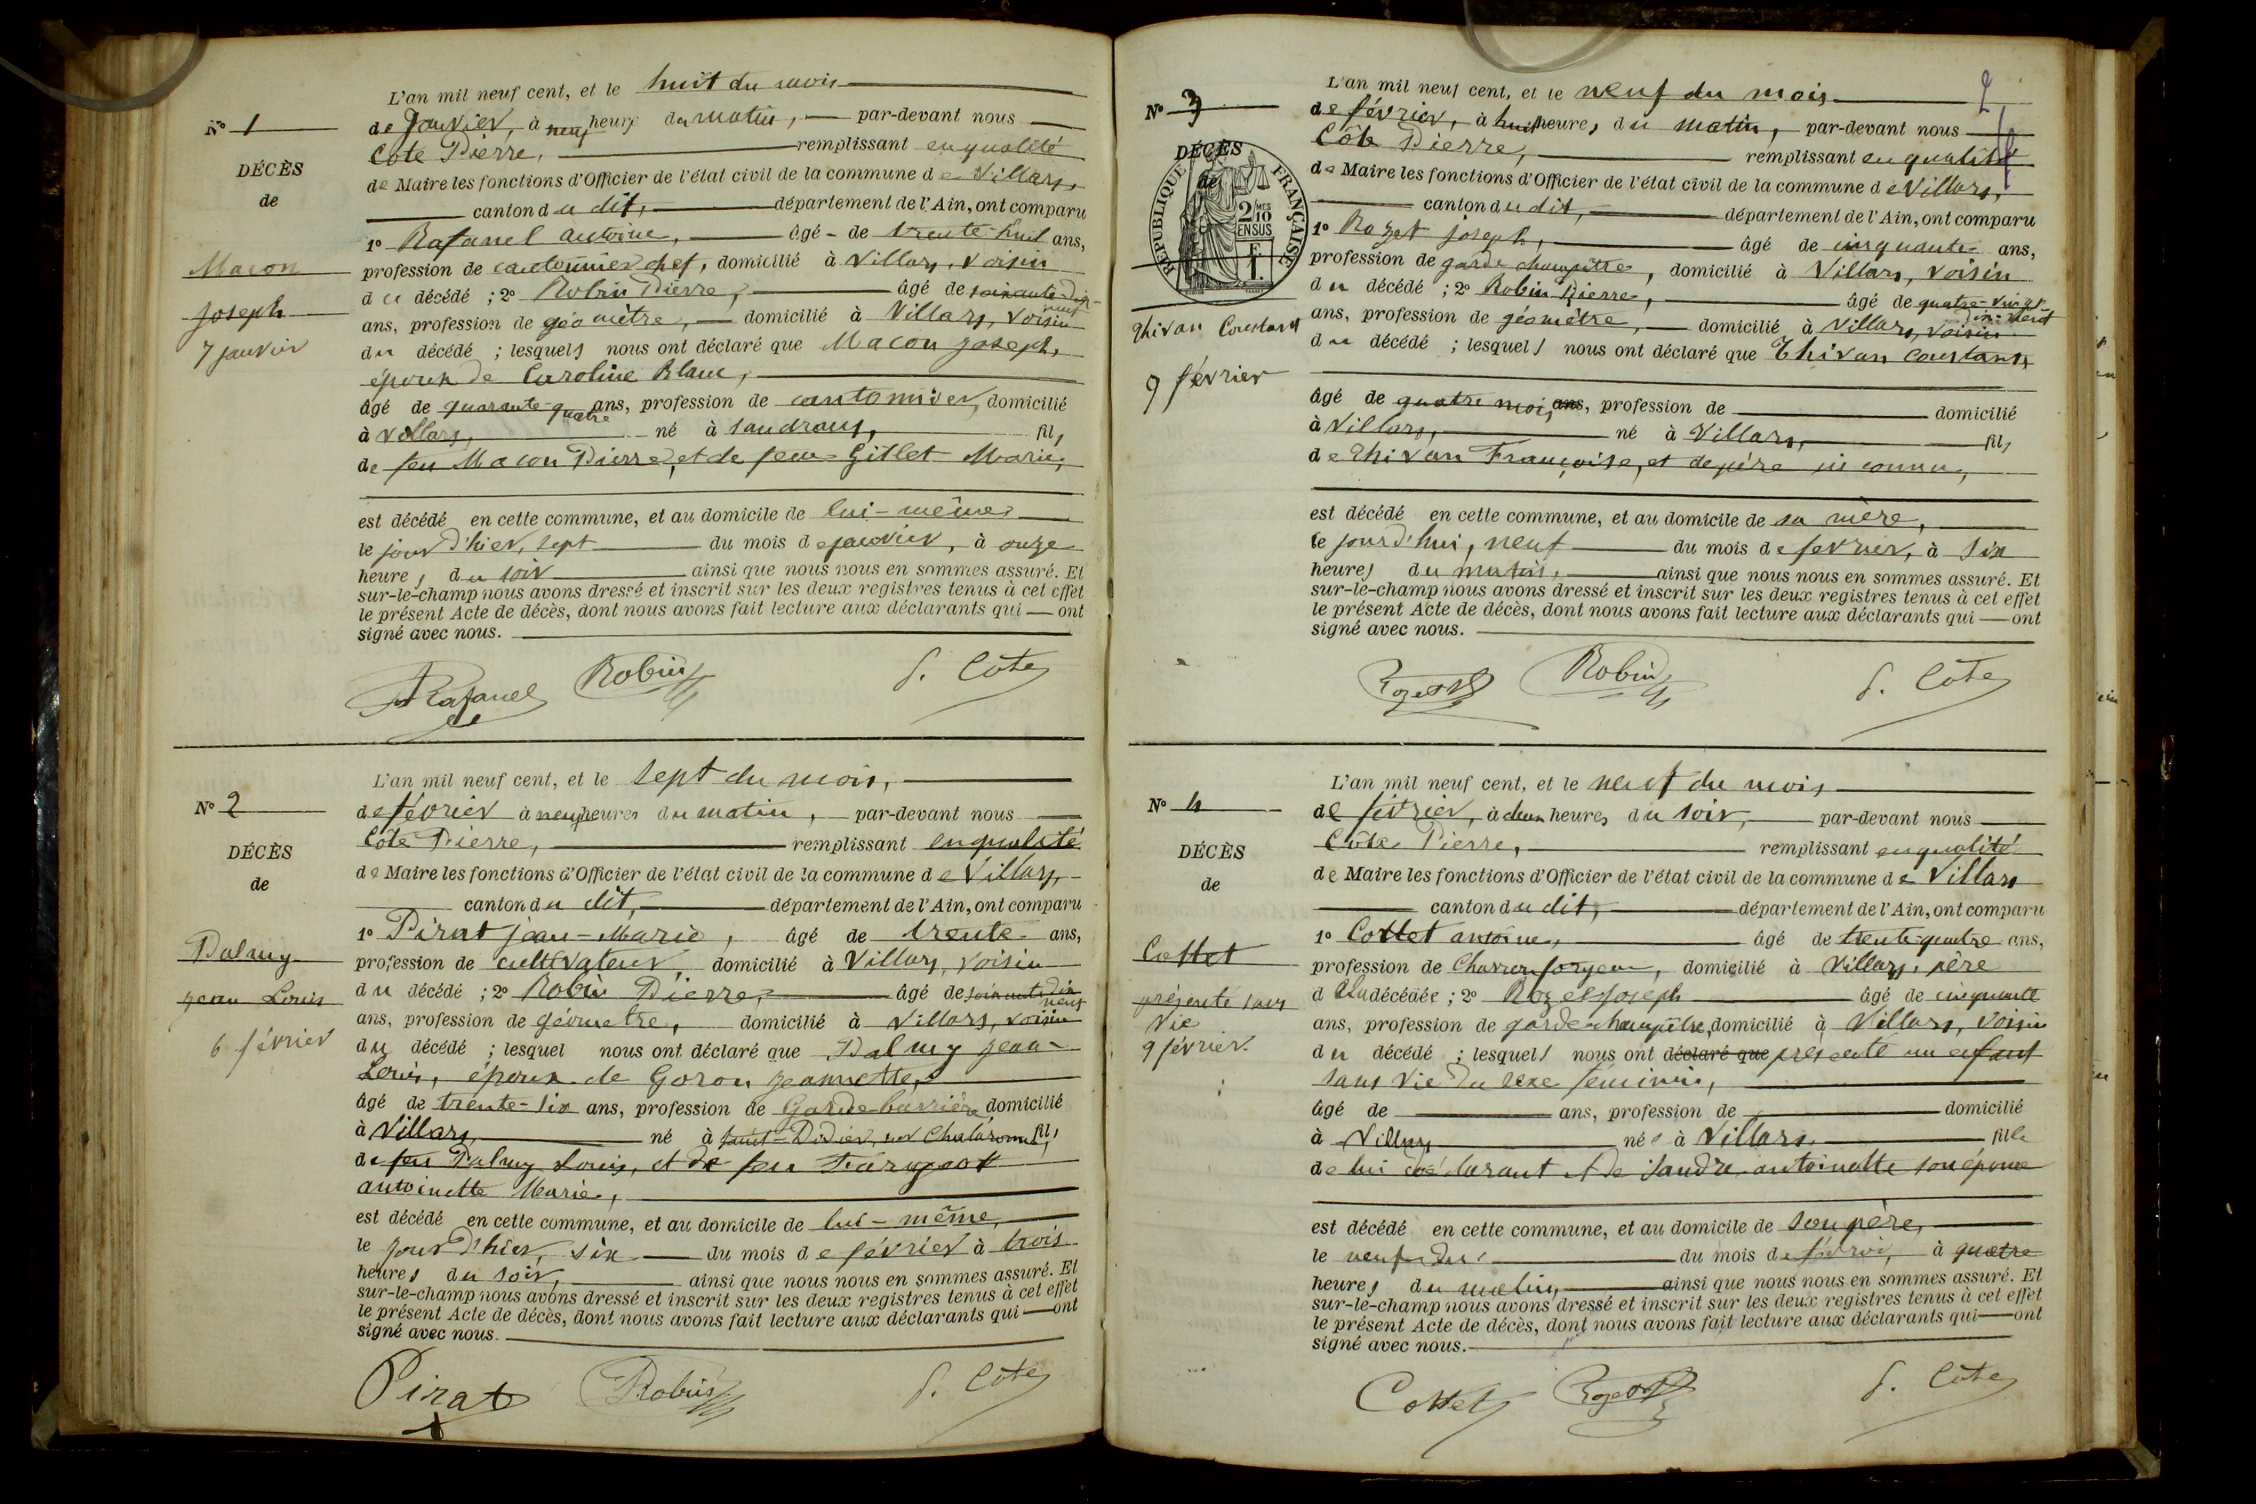 N° 1
DÉCÈS
de
Macon
Joseph
7 janvier
L'an mil neuf cent, et le huit du mois
de Janvier, à neuf heures du matin, par-devant nous
Côte Pierre, remplissant en qualité
de Maire les fonctions d'Officier de l'état civil de la commune de Villars,
canton du dit, département de l'Ain, ont comparu
1° Rafanel Antoine, âgé de trente-huit ans,
profession de cantonnier chef, domicilié à Villars, voisin
du décédé ; 2° Robin Pierre, âgé de soixante-dix-neuf
ans, profession de géomètre, domicilié à Villars, voisin
du décédé ; lesquels nous ont déclaré que Macon Joseph,
époux de Caroline Blanc,
âgé de quarante-quatre ans, profession de cantonnier, domicilié
à Villars, né à Sandrans, fils
de feu Macon Pierre, et de feue Gillet Marie,
est décédé en cette commune, et au domicile de lui-même
le jour d'hier, sept du mois de janvier, à onze
heures du soir ainsi que nous nous en sommes assuré. Et
sur-le-champ nous avons dressé et inscrit sur les deux registres tenus à cet effet
le présent Acte de décès, dont nous avons fait lecture aux déclarants qui ont
signé avec nous.
Rafanel Robin P. Côte
N° 2
DÉCÈS
de
Dalmy
Jean Louis
6 février
L'an mil neuf cent, et le sept du mois,
de février à neuf heures du matin, par-devant nous
Côte Pierre, remplissant en qualité
de Maire les fonctions d'Officier de l'état civil de la commune de Villars,
canton du dit, département de l'Ain, ont comparu
1° Pirat Jean-Marie, âgé de trente ans,
profession de cultivateur, domicilié à Villars, voisin
du décédé ; 2° Robin Pierre, âgé de soixante dix neuf
ans, profession de géomètre, domicilié à Villars, voisin
du décédé ; lesquel nous ont déclaré que Dalmy Jean-
Louis, époux de Goron Jeannette,
âgé de trente-six ans, profession de Garde-barrière domicilié
à Villars, né à Saint-Didier sur Chalaronne, fils
de feu Dalmy Louis, et de feu Fargeot
Antoinette Marie,
est décédé en cette commune, et au domicile de lui-même,
le jour d'hier, six du mois de février à trois
heures du soir, ainsi que nous nous en sommes assuré. Et
sur-le-champ nous avons dressé et inscrit sur les deux registres tenus à cet effet
le présent Acte de décès, dont nous avons fait lecture aux déclarants qui ont
signé avec nous.
Pirat Robin P. Côte
2
N° 3
DÉCÈS
de
RÉPUBLIQUE FRANÇAISE
2/10 EN SUS
Thivan Constant
9 février
L'an mil neuf cent, et le neuf du mois
de février, à huit heures du matin, par-devant nous
Côte Pierre, remplissant en qualité
de Maire les fonctions d'Officier de l'état civil de la commune de Villars,
canton du dit, département de l'Ain, ont comparu
1° Rozet Joseph, âgé de cinquante ans,
profession de garde champêtre, domicilié à Villars, voisin
du décédé ; 2° Robin Pierre, âgé de
ans, profession de géomètre, domicilié à Villars, voisin
du décédé ; lesquels nous ont déclaré que Thivan Constant,
âgé de quatre mois, ans, profession de domicilié
à Villars, né à Villars, fils
de Thivan Françoise, et de père inconnu,
est décédé en cette commune, et au domicile de sa mère,
le jourd'hui, neuf du mois de février, à six
heures du matin, ainsi que nous nous en sommes assuré. Et
sur-le-champ nous avons dressé et inscrit sur les deux registres tenus à cet effet
le présent Acte de décès, dont nous avons fait lecture aux déclarants qui ont
signé avec nous.
Rozet Robin P. Côte
N° 4
DÉCÈS
de
Cottet
présenté sans
vie
9 février.
L'an mil neuf cent, et le neuf du mois
de février, à deux heures du soir, par-devant nous
Côte Pierre, remplissant en qualité
de Maire les fonctions d'Officier de l'état civil de la commune de Villars
canton du dit, département de l'Ain, ont comparu
1° Cottet Antoine, âgé de trente-quatre ans,
profession de Charron forgeur, domicilié à Villars, père
de la décédée ; 2° Rozet Joseph âgé de cinquante
ans, profession de garde champêtre, domicilié à Villars, voisin
du décédé ; lesquels nous ont déclaré que présenté un enfant
sans vie du sexe féminin,
âgé de ans, profession de domicilié
à Villars née à Villars fille
de lui déclarant et de Sandra Antoinette son épouse
est décédé en cette commune, et au domicile de son père,
le neuf du mois de février, à quatre
heures du matin, ainsi que nous nous en sommes assuré. Et
sur-le-champ nous avons dressé et inscrit sur les deux registres tenus à cet effet
le présent Acte de décès, dont nous avons fait lecture aux déclarants qui ont
signé avec nous.
Cottet Rozet P. Côte